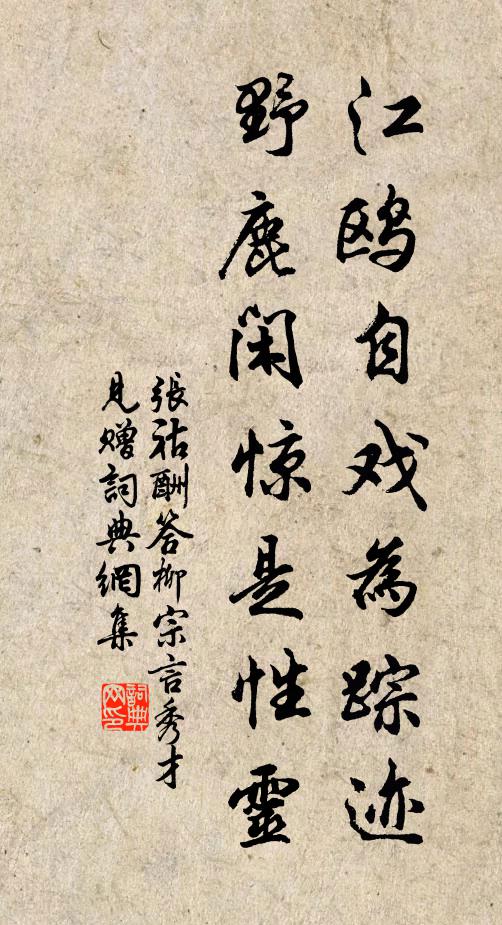 江鸥自戏为踪迹
野鹿闲惊是性靈
張祜酬答柳宗言秀才
見赠詞典網集
詞典网印